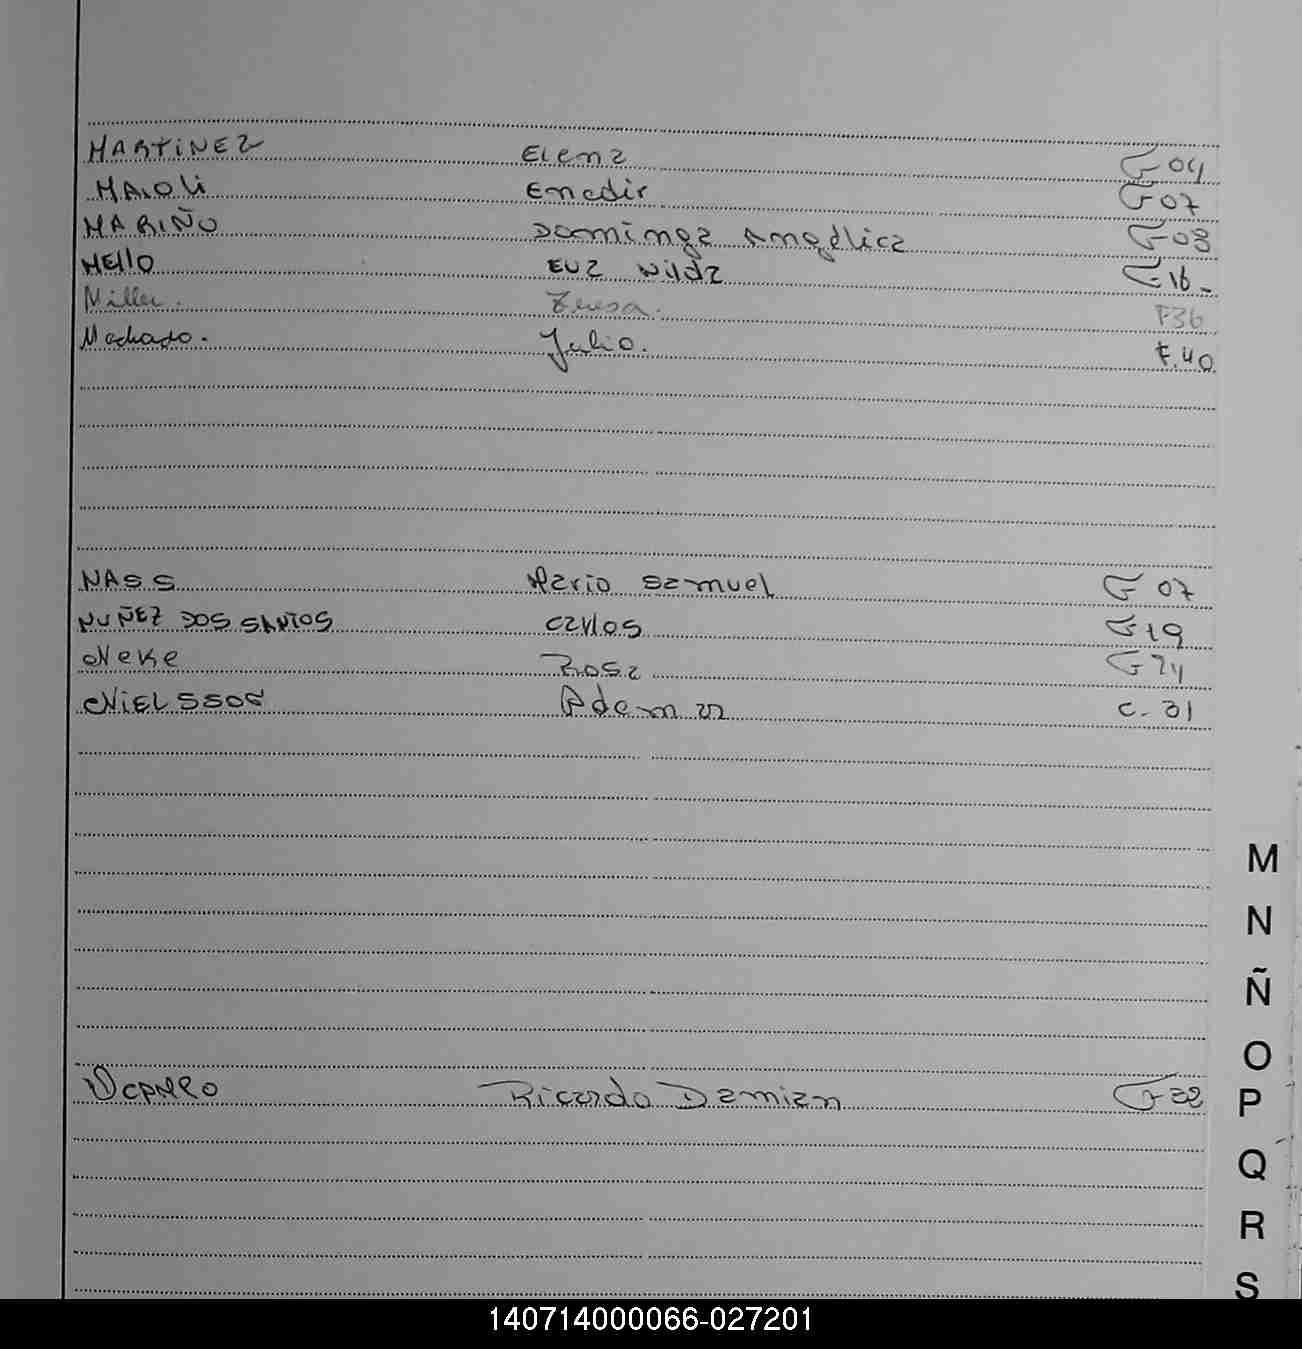 MARTINEZ Elena F 04
MAIOLi Enedir F 07
MARIÑO Dominga Angélica F 08
MELLO EVA Nilda F 16-
Miller. Teresa. F36
Machado. Julio. F.40
NASS Mario Samuel F 07
NUÑEZ DOS SANTOS Carlos F 19
Neke Rosa F 24
NiELSSOS Ademar C-31
OCAMPO Ricardo Damian F 22
M
N
Ñ
O
P
Q
R
S
140714000066-027201